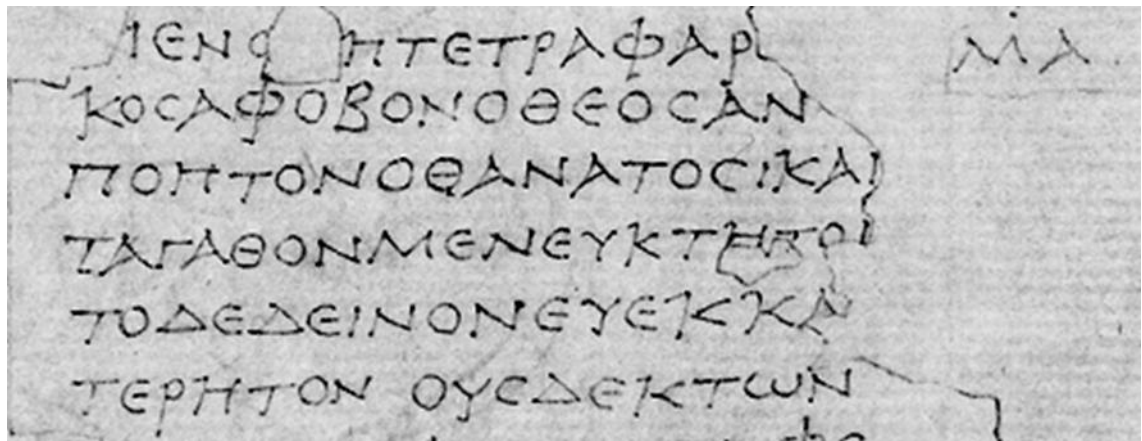 ΙΕΝΟ ΗΤΕΤΡΑΦΑΡ ΜΑ
ΚΟϹΑΦΟΒΟΝΟΘΕΟϹΑΝ
ΠΟΠΤΟΝΟΘΑΝΑΤΟϹΚΑΙ
ΤΑΓΑΘΟΝΜΕΝΕΥΚΤΗΤΟ
ΤΟΔΕΔΕΙΝΟΝΕΥΕΚΚΑ
ΤΕΡΗΤΟΝ ΟΥϹΔΕΚΤΩΝ